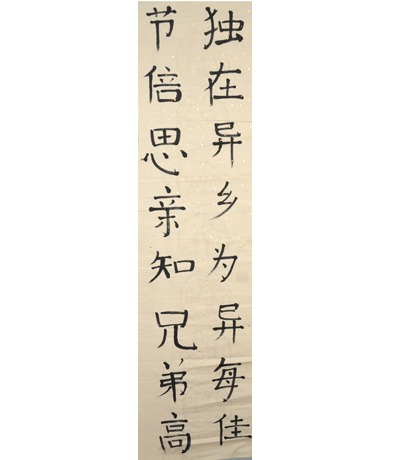 独在异乡为异每佳
节倍思亲知兄弟高